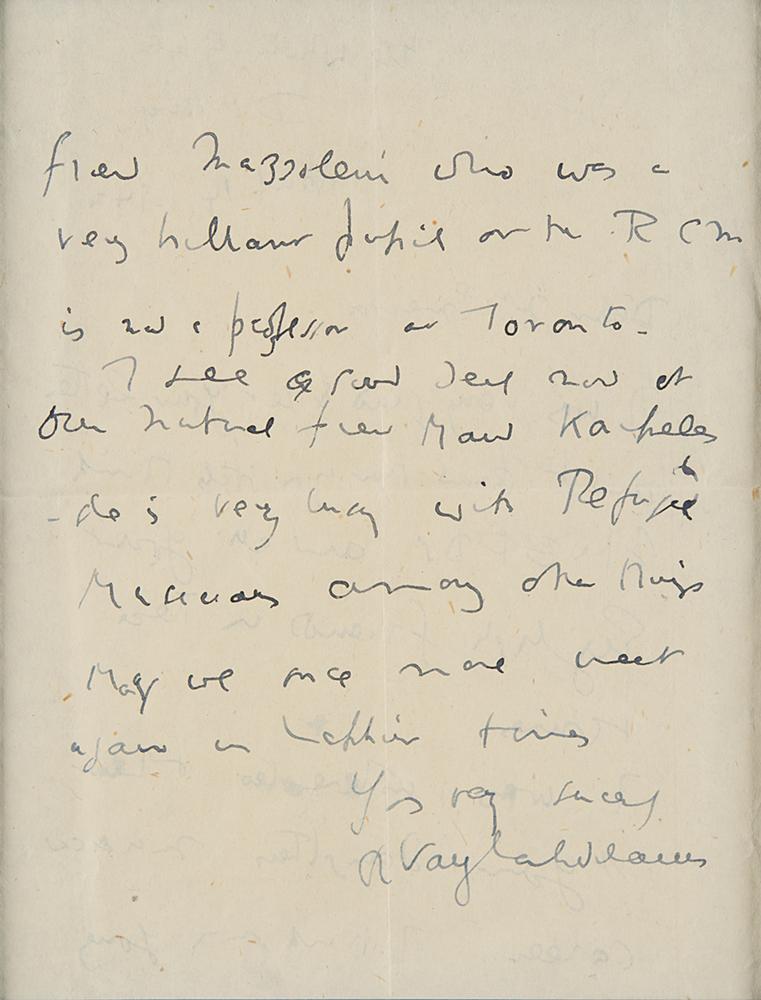 friend Mazzoleni who was a
very brilliant pupil at the R C M
is now a professor at Toronto -
I see a good deal now of
our mutual friend Maud Karpeles
- she is very busy with Refugee
Musicians among other things
May we once more meet
again in happier times
Yrs very sincerely
R Vaughan Williams